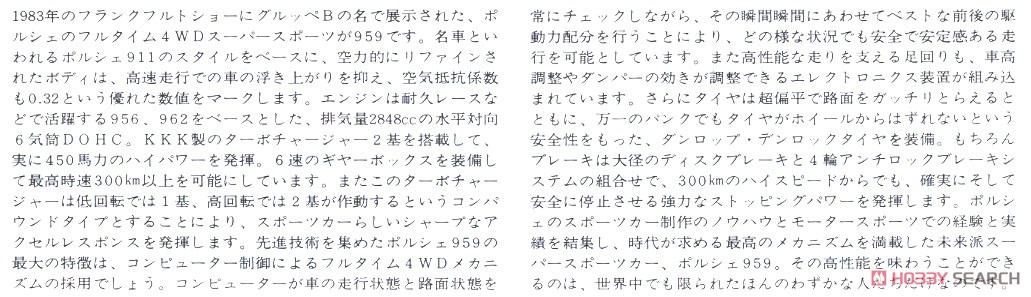 1983年のフランクフルトショーにグルッペBの名で展示された、ポ
ルシェのフルタイム4WDスーパースポーツが959です。名車とい
われるポルシェ911のスタイルをベースに、空力的にリファインさ
れたボディは、高速走行での車の浮き上がりを抑え、空気抵抗係数
も0.32という優れた数値をマークします。エンジンは耐久レースな
どで活躍する956、962をベースとした、排気量2848ccの水平対向
6気筒DOHC。KKK製のターボチャージャー2基を搭載して、
実に450馬力のハイパワーを発揮。6速のギヤーボックスを装備し
て最高時速300km以上を可能にしています。またこのターボチャー
ジャーは低回転では1基、高回転では2基が作動するというコンパ
ウンドタイプとすることにより、スポーツカーらしいシャープなア
クセルレスポンスを発揮します。先進技術を集めたポルシェ959の
最大の特徴は、コンピューター制御によるフルタイム4WDメカニ
ズムの採用でしょう。コンピューターが車の走行状態と路面状態を
常にチェックしながら、その瞬間瞬間にあわせてベストな前後の駆
動力配分を行うことにより、どの様な状況でも安全で安定感ある走
行を可能としています。また高性能な走りを支える足回りも、車高
調整やダンパーの効きが調整できるエレクトロニクス装置が組み込
まれています。さらにタイヤは超偏平で路面をガッチリとらえると
ともに、万一のパンクでもタイヤがホイールからはずれないという
安全性をもった、ダンロップ・デンロックタイヤを装備。もちろん
ブレーキは大径のディスクブレーキと4輪アンチロックブレーキシ
ステムの組合せで、300kmのハイスピードからでも、確実にそして
安全に停止させる強力なストッピングパワーを発揮します。ポルシ
ェのスポーツカー制作のノウハウとモータースポーツでの経験と実
績を結集し、時代が求める最高のメカニズムを満載した未来派スー
パースポーツカー、ポルシェ959。その高性能を味わうことができ
るのは、世界中でも限られたほんのわずかな人
HOBBY SEARCH